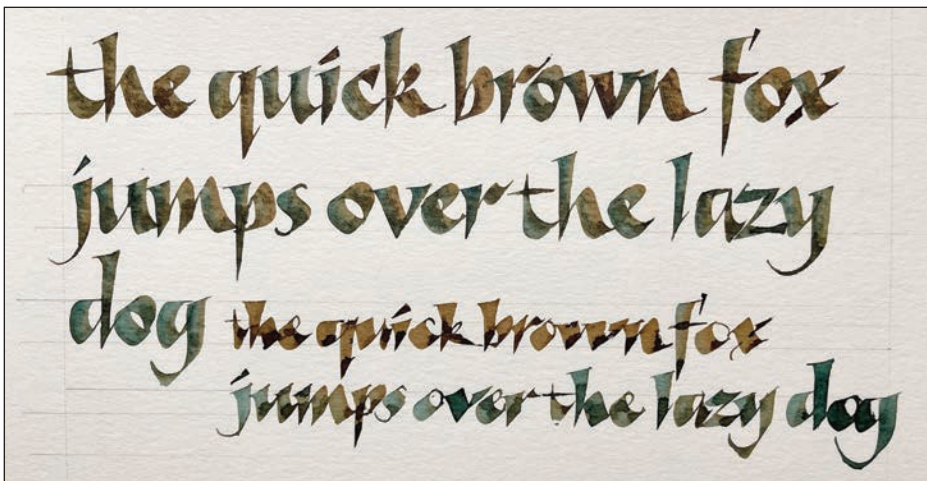 the quick brown fox
jumps over the lazy
dog
the quick brown fox
jumps over the lazy dog